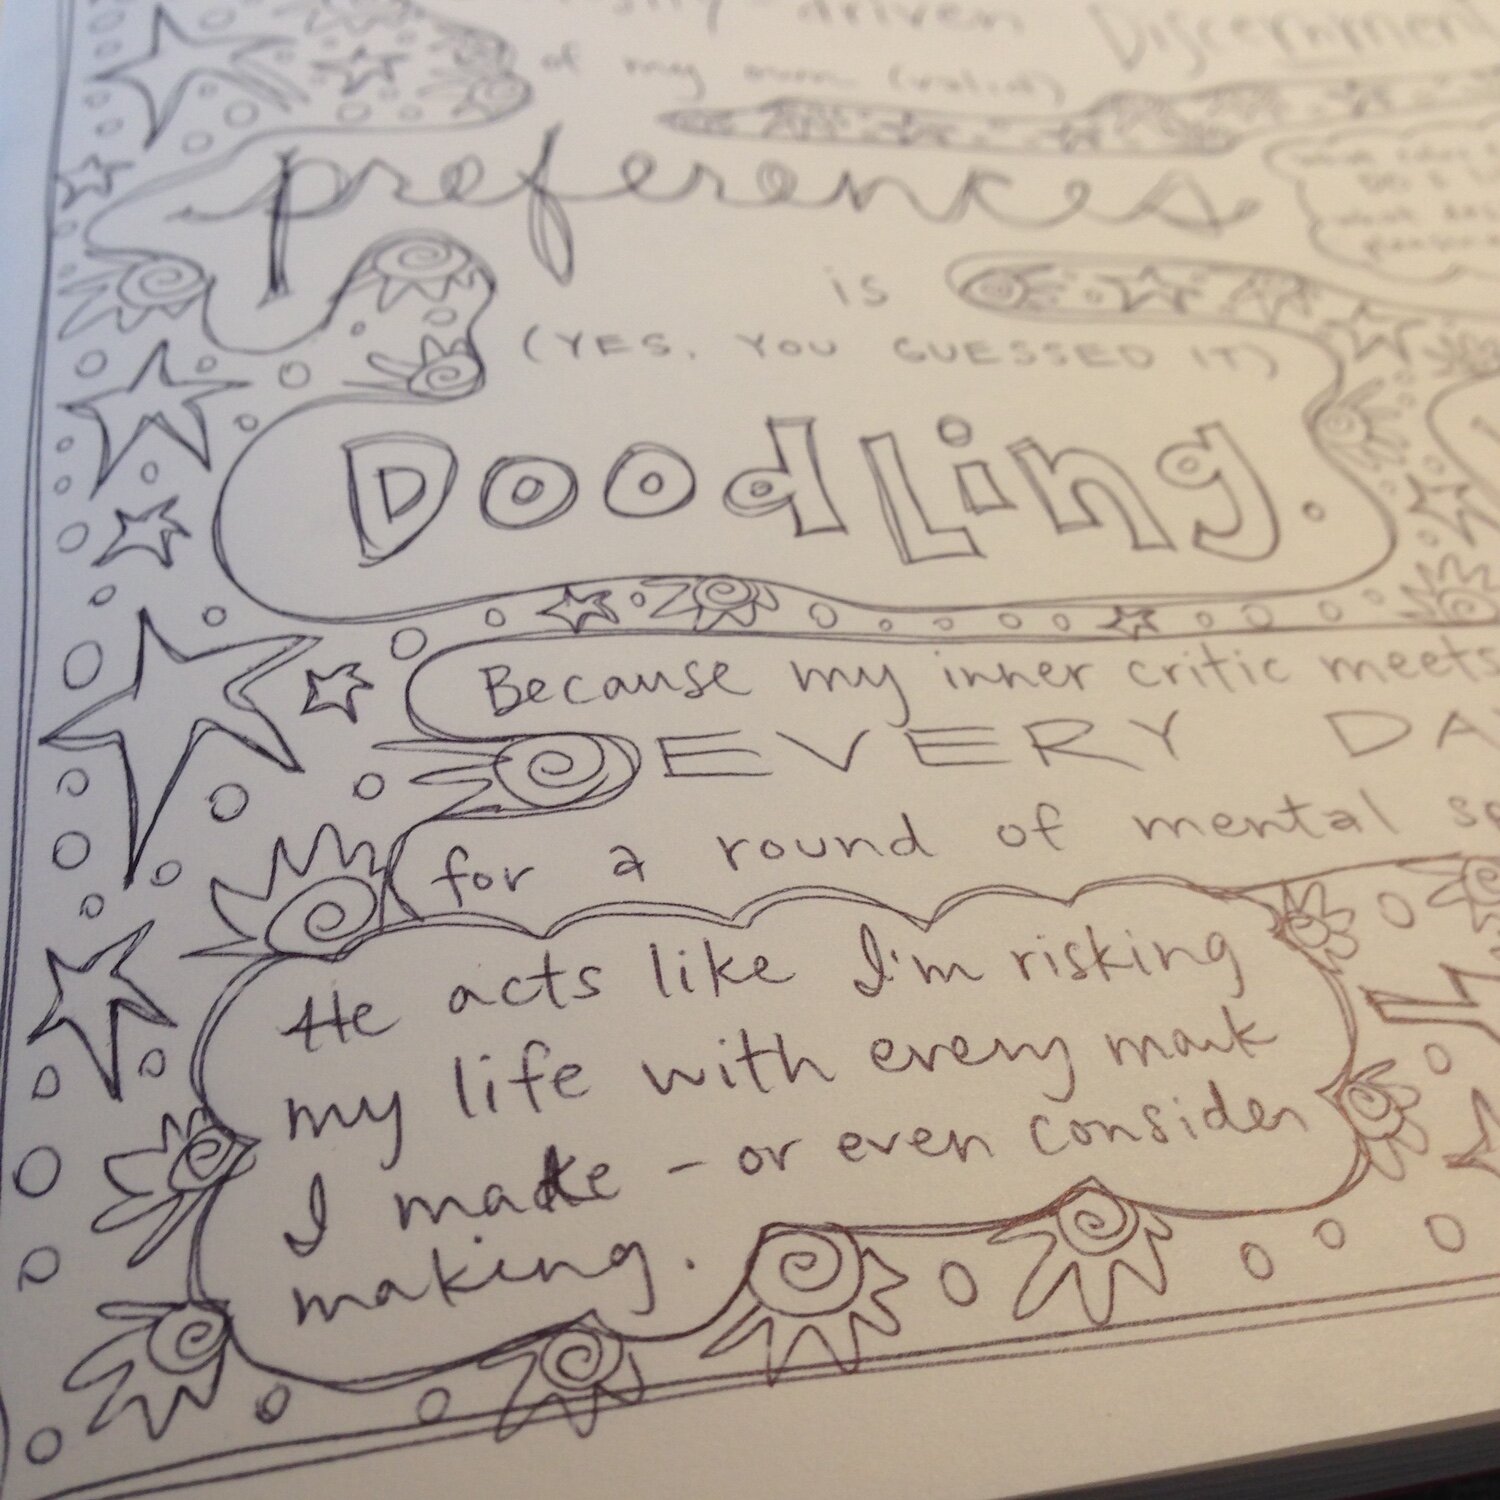 driven Discernment
of my own (valid)
preferences
is
(YES, YOU GUESSED IT)
DoodLing.
Because my inner critic meets
EVERY DA
for a round of mental
He acts like I'm risking
my life with every mark
I make – or even consider
making.